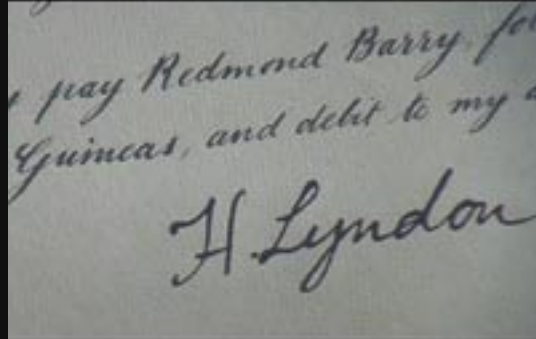 pay Redmond Barry, fo
Guineas, and debit to my
H. Lyndon